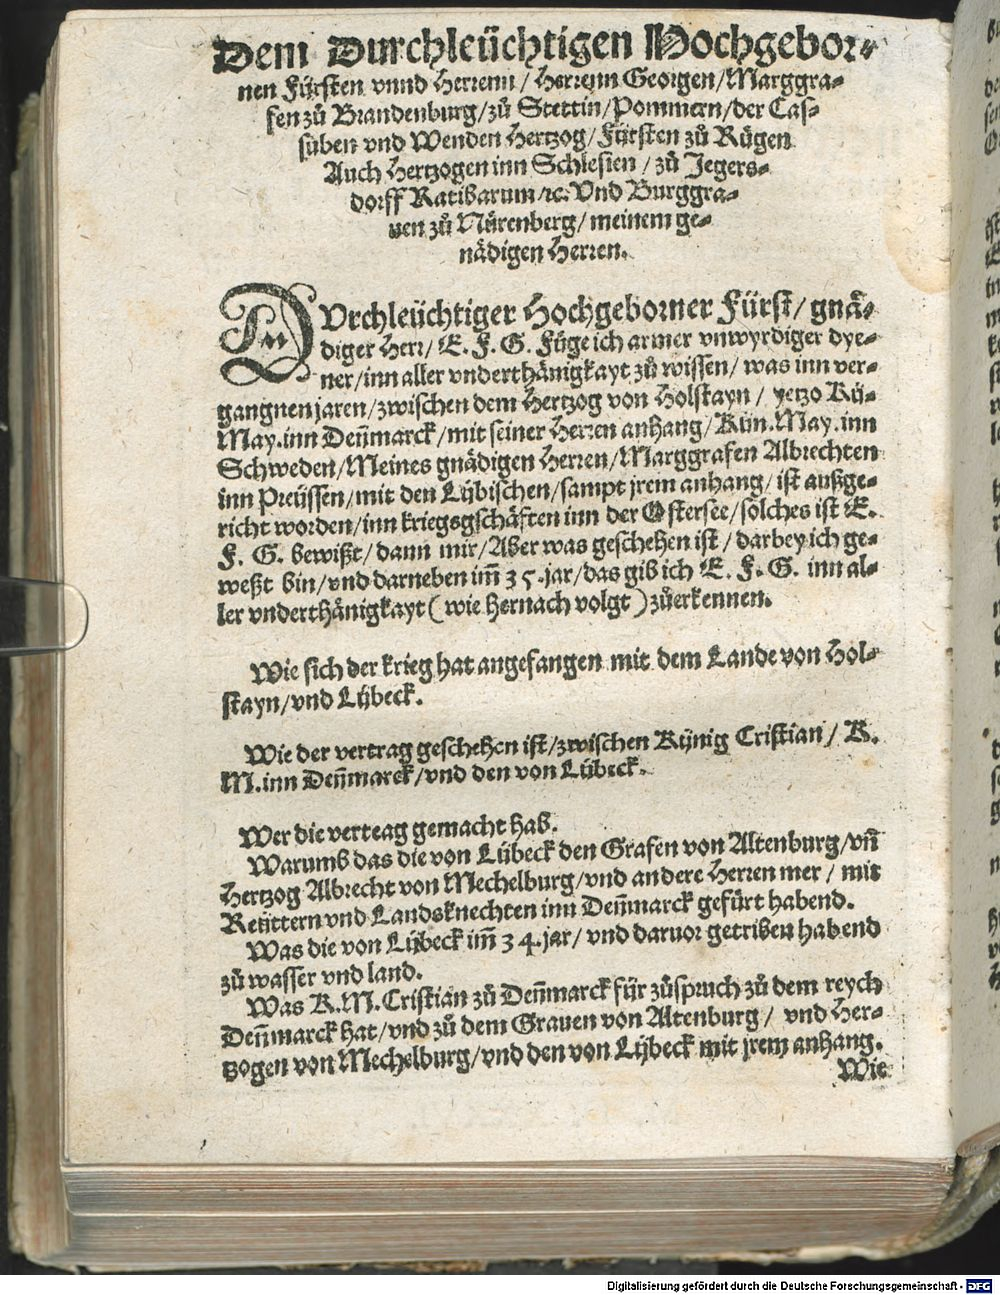 Dem Durchleüchtigen Hochgebor-
nen Fürsten vnnd Herrenn / Herrenn Georgen / Marggra-
fen zů Brandenburg / zů Stettin / Pommern / der Cas-
süben vnd Wenden Hertzog / Fürsten zů Rügen
Auch Hertzogen inn Schlesien / zů Jegers-
dorff Ratibarum / ꝛc. Vnd Burggra-
uen zů Nürenberg / meinem ge-
nädigen Herren.
DVrchleüchtiger Hochgeborner Fürst / gnä-
diger Herr / E. F. G. Füge ich armer vnwyrdiger dye-
ner / inn aller vnderthänigkayt zů wissen / was inn ver-
gangnen jaren / zwischen dem Hertzog von Holstayn / yetzo Kü-
May. inn Deñmarck / mit seiner Herren anhang / Kün. May. inn
Schweden / Meines gnädigen Herren / Marggrafen Albrechten
inn Preüssen / mit den Lübischen / sampt jrem anhang / ist außge-
richt worden / inn kriegsgschäften inn der Ostersee / sölches ist E.
F. G. bewißt / dann mir / Aber was geschehen ist / darbey ich ge-
weßt bin / vnd darneben im̃ 35. jar / das gib ich E. F. G. inn al-
ler vnderthänigkayt ( wie hernach volgt ) zůerkennen.
Wie sich der krieg hat angefangen mit dem Lande von Hol-
stayn / vnd Lübeck.
Wie der vertrag geschehen ist / zwischen Künig Cristian / K.
M. inn Deñmarck / vnd den von Lübeck.
Wer die verteag gemacht hab.
Warumb das die von Lübeck den Grafen von Altenburg / vñ
Hertzog Albrecht von Mechelburg / vnd andere Herren mer / mit
Reüttern vnd Landsknechten inn Deñmarck gefürt habend.
Was die von Lübeck im̃ 34. jar / vnd daruor getriben habend
zů wasser vnd land.
Was K. M. Cristian zů Deñmarck für zůspruch zů dem reych
Deñmarck hat / vnd zů dem Grauen von Altenburg / vnd Her-
tzogen von Mechelburg / vnd den von Lübeck mit jrem anhang.
Wie
Digitalisierung gefördert durch die Deutsche Forschungsgemeinschaft - DFG